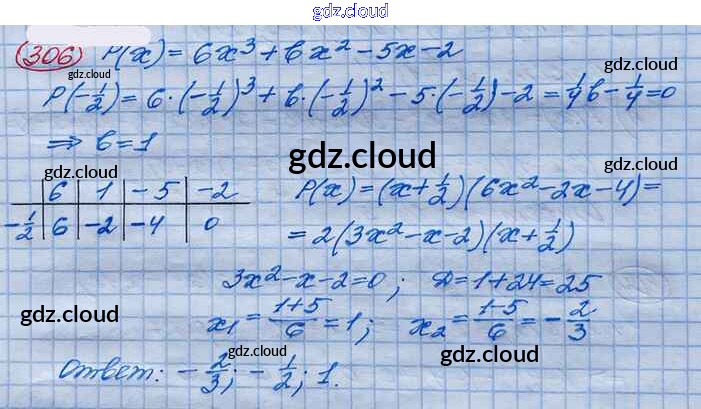 gdz.cloud
(306) P(x) = 6x³ + bx² - 5x - 2
gdz.cloud gdz.cloud
P(-1/2) = 6·(-1/2)³ + b·(-1/2)² - 5·(-1/2) - 2 = 1/4 b - 1/4 = 0
gdz.cloud
⇒ b = 1
gdz.cloud
gdz.cloud
6 | 1 | -5 | -2
-1/2 | 6 | -2 | -4 | 0
P(x) = (x + 1/2)(6x² - 2x - 4) =
= 2(3x² - x - 2)(x + 1/2)
3x² - x - 2 = 0; D = 1 + 24 = 25
gdz.cloud
x₁ = (1+5)/6 = 1; x₂ = (1-5)/6 = -2/3
gdz.cloud
gdz.cloud
Ответ: -2/3; -1/2; 1.
gdz.cloud